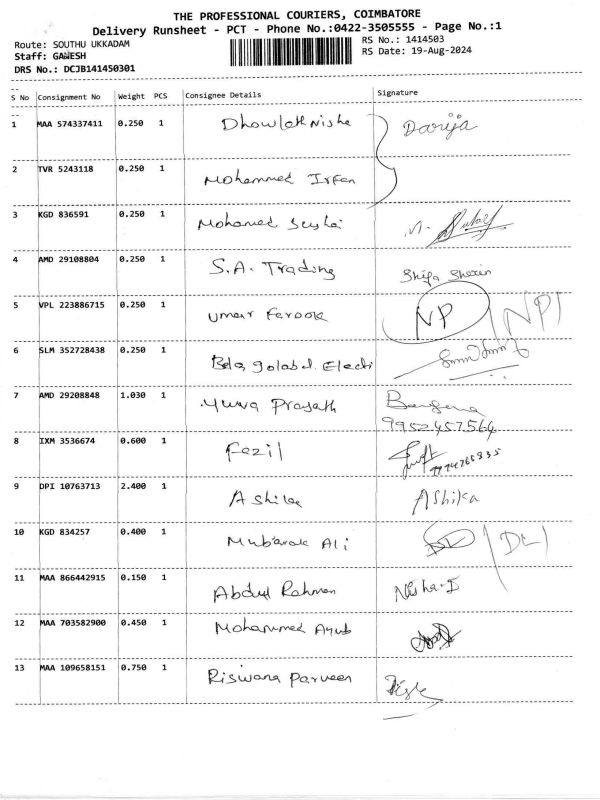 THE PROFESSIONAL COURIERS, COIMBATORE
Delivery Runsheet - PCT - Phone No.:0422-3505555 - Page No.:1
Route: SOUTHU UKKADAM RS No.: 1414503
Staff: GANESH RS Date: 19-Aug-2024
DRS No.: DCJB141450301
S No Consignment No Weight PCS Consignee Details Signature
1 MAA 574337411 0.250 1 Dhowlath Nisha Darija
2 TVR 5243118 0.250 1 Mohammed Irfan
3 KGD 836591 0.250 1 Mohamed
4 AMD 29108804 0.250 1 S.A. Trading Shifa Sherin
5 VPL 223886715 0.250 1 Umar Farook NP NP
6 SLM 352728438 0.250 1
7 AMD 29208848 1.030 1 Yuva Prasath
9952457564
8 IXM 3536674 0.600 1 Fazil
9 DPI 10763713 2.400 1 Ashika AShika
10 KGD 834257 0.400 1 Mubarak Ali DL
11 MAA 866442915 0.150 1 Abdul Rahman Nisha-I
12 MAA 703582900 0.450 1 Mohammed Ayub
13 MAA 109658151 0.750 1 Riswana Parveen